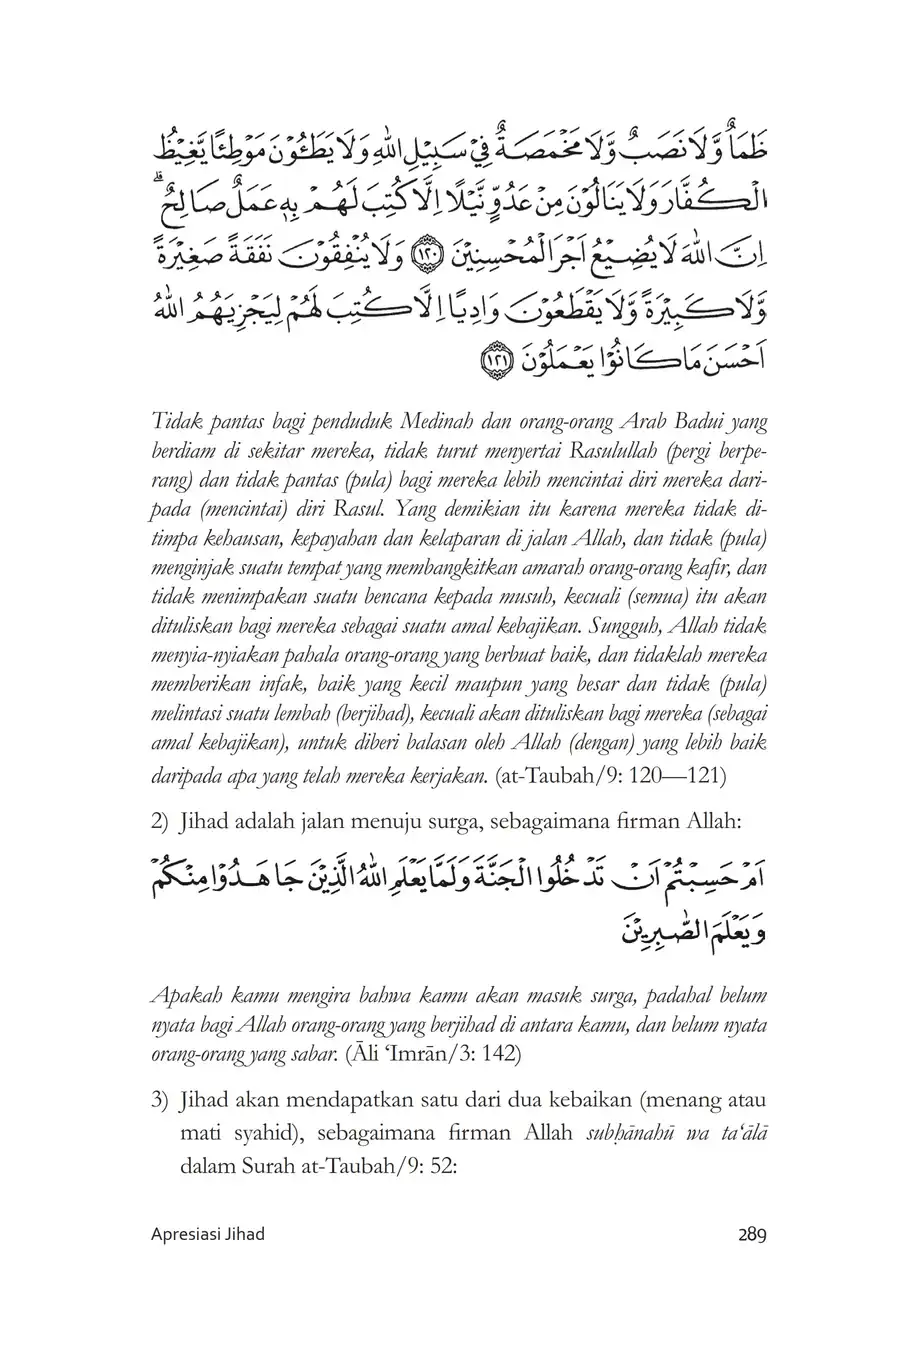 ظَمَاٌ وَّلَا نَصَبٌ وَّلَا مَخْمَصَةٌ فِيْ سَبِيْلِ اللّٰهِ وَلَا يَطَـُٔوْنَ مَوْطِئًا يَّغِيْظُ
الْكُفَّارَ وَلَا يَنَالُوْنَ مِنْ عَدُوٍّ نَّيْلًا اِلَّا كُتِبَ لَهُمْ بِهٖ عَمَلٌ صَالِحٌ ۗ
اِنَّ اللّٰهَ لَا يُضِيْعُ اَجْرَ الْمُحْسِنِيْنَ ﴿١٢٠﴾ وَلَا يُنْفِقُوْنَ نَفَقَةً صَغِيْرَةً
وَّلَا كَبِيْرَةً وَّلَا يَقْطَعُوْنَ وَادِيًا اِلَّا كُتِبَ لَهُمْ لِيَجْزِيَهُمُ اللّٰهُ
اَحْسَنَ مَا كَانُوْا يَعْمَلُوْنَ ﴿١٢١﴾
Tidak pantas bagi penduduk Medinah dan orang-orang Arab Badui yang
berdiam di sekitar mereka, tidak turut menyertai Rasulullah (pergi berpe-
rang) dan tidak pantas (pula) bagi mereka lebih mencintai diri mereka dari-
pada (mencintai) diri Rasul. Yang demikian itu karena mereka tidak di-
timpa kehausan, kepayahan dan kelaparan di jalan Allah, dan tidak (pula)
menginjak suatu tempat yang membangkitkan amarah orang-orang kafir, dan
tidak menimpakan suatu bencana kepada musuh, kecuali (semua) itu akan
dituliskan bagi mereka sebagai suatu amal kebajikan. Sungguh, Allah tidak
menyia-nyiakan pahala orang-orang yang berbuat baik, dan tidaklah mereka
memberikan infak, baik yang kecil maupun yang besar dan tidak (pula)
melintasi suatu lembah (berjihad), kecuali akan dituliskan bagi mereka (sebagai
amal kebajikan), untuk diberi balasan oleh Allah (dengan) yang lebih baik
daripada apa yang telah mereka kerjakan. (at-Taubah/9: 120—121)
2) Jihad adalah jalan menuju surga, sebagaimana firman Allah:
اَمْ حَسِبْتُمْ اَنْ تَدْخُلُوا الْجَنَّةَ وَلَمَّا يَعْلَمِ اللّٰهُ الَّذِيْنَ جَاهَدُوْا مِنْكُمْ
وَيَعْلَمَ الصّٰبِرِيْنَ
Apakah kamu mengira bahwa kamu akan masuk surga, padahal belum
nyata bagi Allah orang-orang yang berjihad di antara kamu, dan belum nyata
orang-orang yang sabar. (Āli ‘Imrān/3: 142)
3) Jihad akan mendapatkan satu dari dua kebaikan (menang atau
mati syahid), sebagaimana firman Allah subḥānahū wa ta‘ālā
dalam Surah at-Taubah/9: 52:
Apresiasi Jihad 289